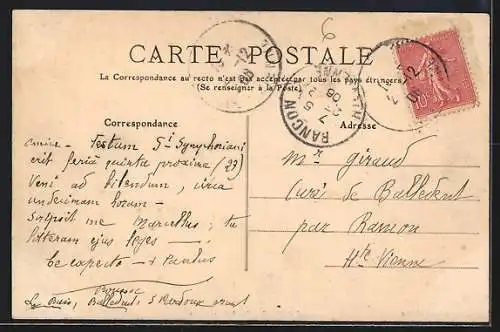 CARTE POSTALE
La Correspondance au recto n'est pas acceptée par tous les pays étrangers
(Se renseigner à la Poste)
Correspondance
Adresse
RANCON
Hte VIENNE
amice - Festum Sti Symphoriani
erit feria quinta proxima (22)
Veni ad bibendum, circa
undecimam horam -
Scripsit me Marcellus; tu
litteram ejus leges -
te expecto - + Paulus
Le Buis, Balledent, S
Mr Giraud
Curé de Balledent
par Rancon
Hte Vienne